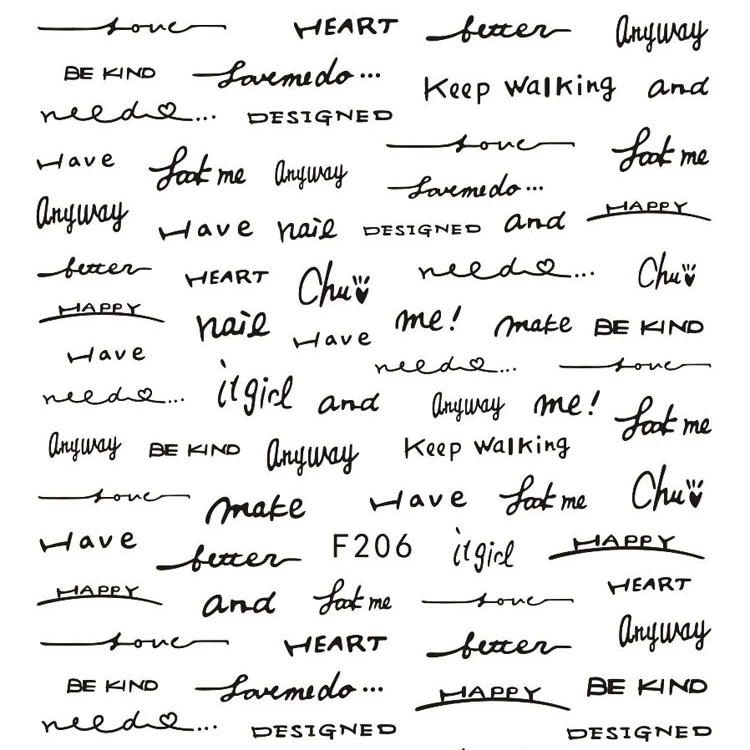 love HEART better Anyway
BE KIND Lovemedo... Keep walking and
need... DESIGNED
love
Have Look me Anyway Look me
Lovemedo...
Anyway Have nail DESIGNED and HAPPY
better HEART Chu need... Chu
HAPPY nail Have me! make BE KIND
Have need... love
need... it girl and Anyway me! Look me
Anyway BE KIND Anyway Keep walking
love make Have Look me Chu
Have better F206 it girl HAPPY
HAPPY and Look me love HEART
love HEART better Anyway
BE KIND Lovemedo... HAPPY BE KIND
need... DESIGNED DESIGNED